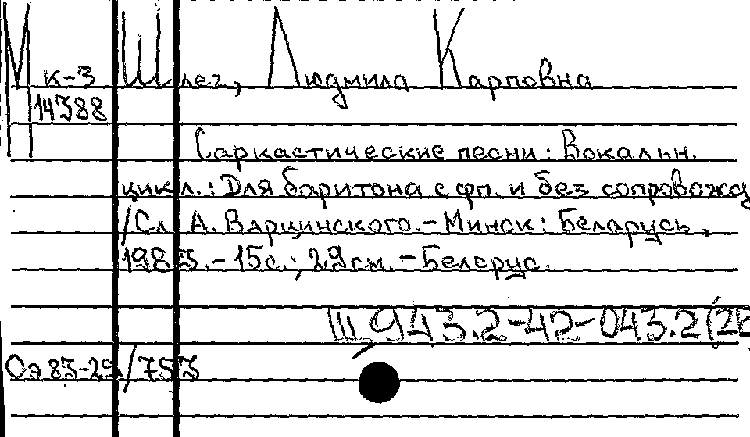 М к-3 Шлег, Людмила Карповна
14388
Саркастические песни: Вокальн.
цикл.: Для баритона с фп. и без сопровожд
/Сл. А. Вярцинского.-Минск: Беларусь,
1983.-15с.; 29см.-Беларус.
III 943.2-42-043.2(2Б
Оэ 83-29/753